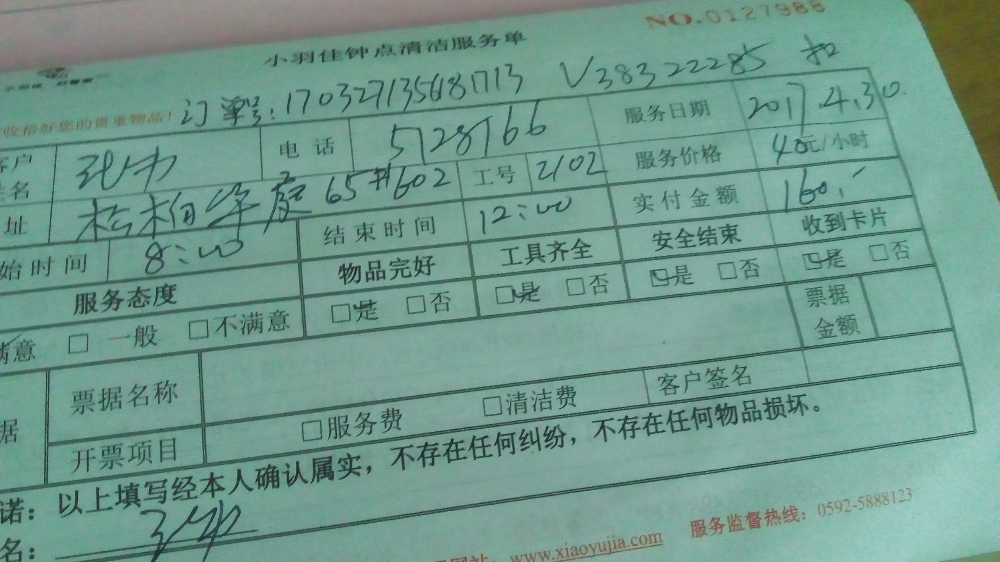 NO.0127988
小羽佳钟点清洁服务单
收拾好您的贵重物品! 订单号:170327135681713 V38322285 扣
客户姓名 电话 5128766 服务日期 2017.4.30.
址 松柏华庭65#602 工号 2102 服务价格 40元/小时
始时间 8:00 结束时间 12:00 实付金额 160.-
服务态度 物品完好 工具齐全 安全结束 收到卡片
满意 □ 一般 □不满意 □是 □否 □是 □否 □是 □否 □是 □否
据 票据名称 票据金额
开票项目 □服务费 □清洁费 客户签名
诺:以上填写经本人确认属实,不存在任何纠纷,不存在任何物品损坏。
名:
网站:www.xiaoyujia.com 服务监督热线:0592-5888123